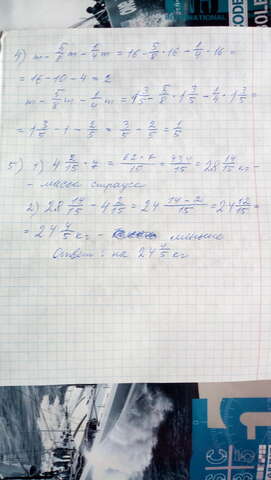 4) m - 5/8 m - 1/4 m = 16 - 5/8 · 16 - 1/4 · 16 =
= 16 - 10 - 4 = 2
m - 5/8 m - 1/4 m = 1 3/5 - 5/8 · 1 3/5 - 1/4 · 1 3/5 =
= 1 3/5 - 1 - 2/5 = 3/5 - 2/5 = 1/5
5) 1) 4 2/15 · 7 = 62 · 7/15 = 434/15 = 28 14/15 кг -
- масса страуса
2) 28 14/15 - 4 2/15 = 24 14 - 2/15 = 24 12/15 =
= 24 4/5 кг - меньше
Ответ: на 24 4/5 кг
INTERNATIONAL
CODE
5